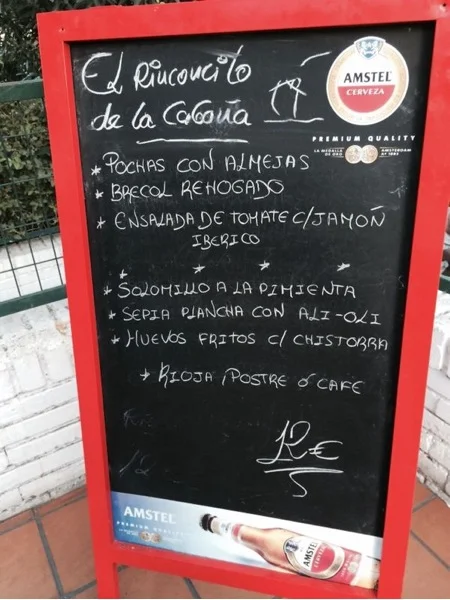 El Rinconcito
de la Cabaña
AMSTEL
CERVEZA
PREMIUM QUALITY
LA MEDALLA DE ORO
AMSTERDAM Nº 1883
* POCHAS CON ALMEJAS
* BRECOL REHOGADO
* ENSALADA DE TOMATE C/JAMÓN
IBERICO
* * * *
* SOLOMILLO A LA PIMIENTA
* SEPIA PLANCHA CON ALI-OLI
* HUEVOS FRITOS C/ CHISTORRA
* RIOJA, POSTRE Ó CAFE
12€
AMSTEL
PREMIUM QUALITY
AMSTEL
CERVEZA